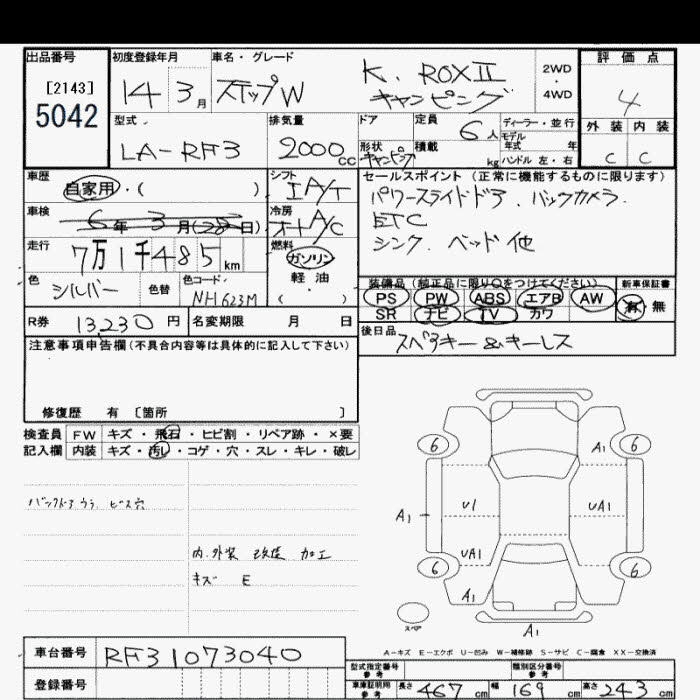 出品番号 初度登録年月 車名・グレード 評価点
[2143]
5042
14 3月 ステップW K. ROXⅡ キャンピング 2WD・4WD 4
型式 排気量 ドア 定員 6人 ディーラー・並行 外装 内装
モデル年式 年
LA-RF3 2000cc 形状 キャンピング 積載 kg ハンドル 左・右 C C
車歴 シフト セールスポイント(正常に機能するものに限ります)
自家用・( ) IA/T パワースライドドア、バックカメラ
車検 冷房 ETC
6年3月(28日) オートA/C シンク、ベッド他
走行 燃料
7万1千485km ガソリン
軽油
色 色替 色コード ( ) 装備品(純正品に限り○をつけてください) 新車保証書
シルバー NH623M PS PW ABS エアB AW 有・無
SR ナビ TV カワ
R券 13,230円 名変期限 月 日 後日品
スペアキー&キーレス
注意事項申告欄(不具合内容等は具体的に記入して下さい)
修復歴 有 〔箇所 〕
検査員 FW キズ・飛石・ヒビ割・リペア跡・×要
記入欄 内装 キズ・汚れ・コゲ・穴・スレ・キレ・破レ
6 A1 6
U1 UA1
A1
UA1
6 6
A1
スペア A1
バックドアウラ ビス穴
内.外装 改造 加工
キズ E
A-キズ E-エクボ U-凹み W-補修跡 S-サビ C-腐食 XX-交換済
車台番号 RF31073040
型式指定番号 参考 類別区分番号 参考
登録番号 車庫証明用 参考 長さ 467cm 幅 169cm 高さ 243cm